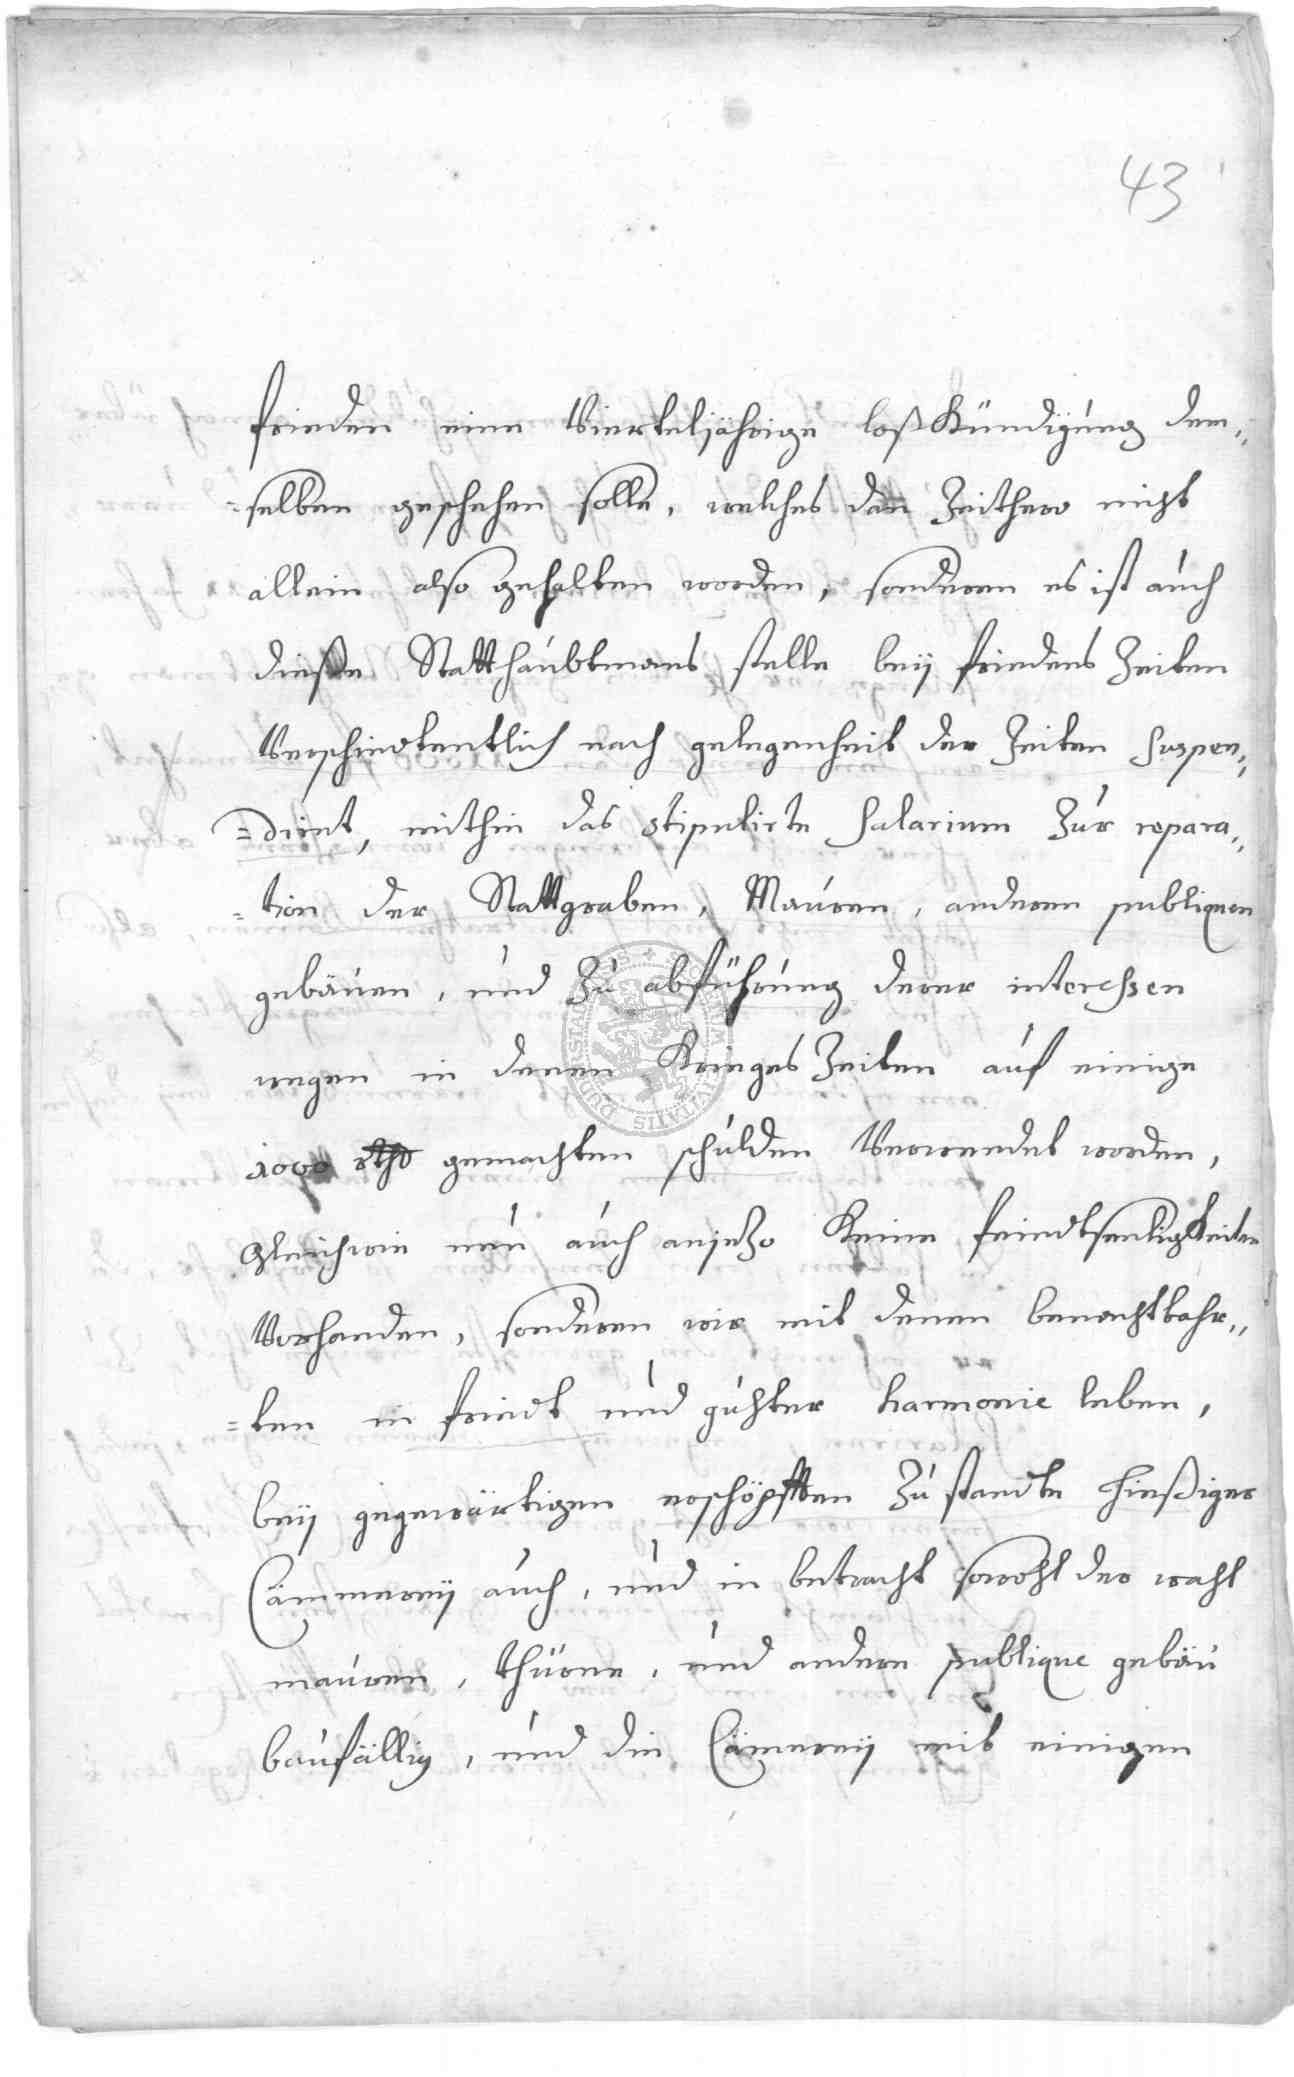 43
frieden eine Vierteljährige loßKündigung dem„
=selben geschehen solle, welches dan̄ Zeithero nicht
allein also gehalten worden, sonderen es ist auch
dieße Statthaubtmans stelle beÿ friedens Zeiten
Verschiedtentlich nach gelegenheit der Zeiten suspen„
=dirt, mithin das stipulirte Salarium Zur repara„
=tion der Stattgraben, Mauren, anderen publiquen
gebäuen, und Zu abführung derer interessen
wegen in denen Krieges Zeiten auf einige
1000 rthr gemachten schulden Verwendet worden,
Gleichwie nun auch anjetzo Keine feindtseeligkeiten
Vorhanden, sonderen wir mit denen benachtbahr„
=ten in friedt und guhter harmonie leben,
beÿ gegewärtigen erschöpften Zustandte hießiger
Cämmereÿ auch, und in betracht sowohl der wahl
mauren, thürne, und andere publique gebäu
baufällig, und die Cämmereÿ mit einigen